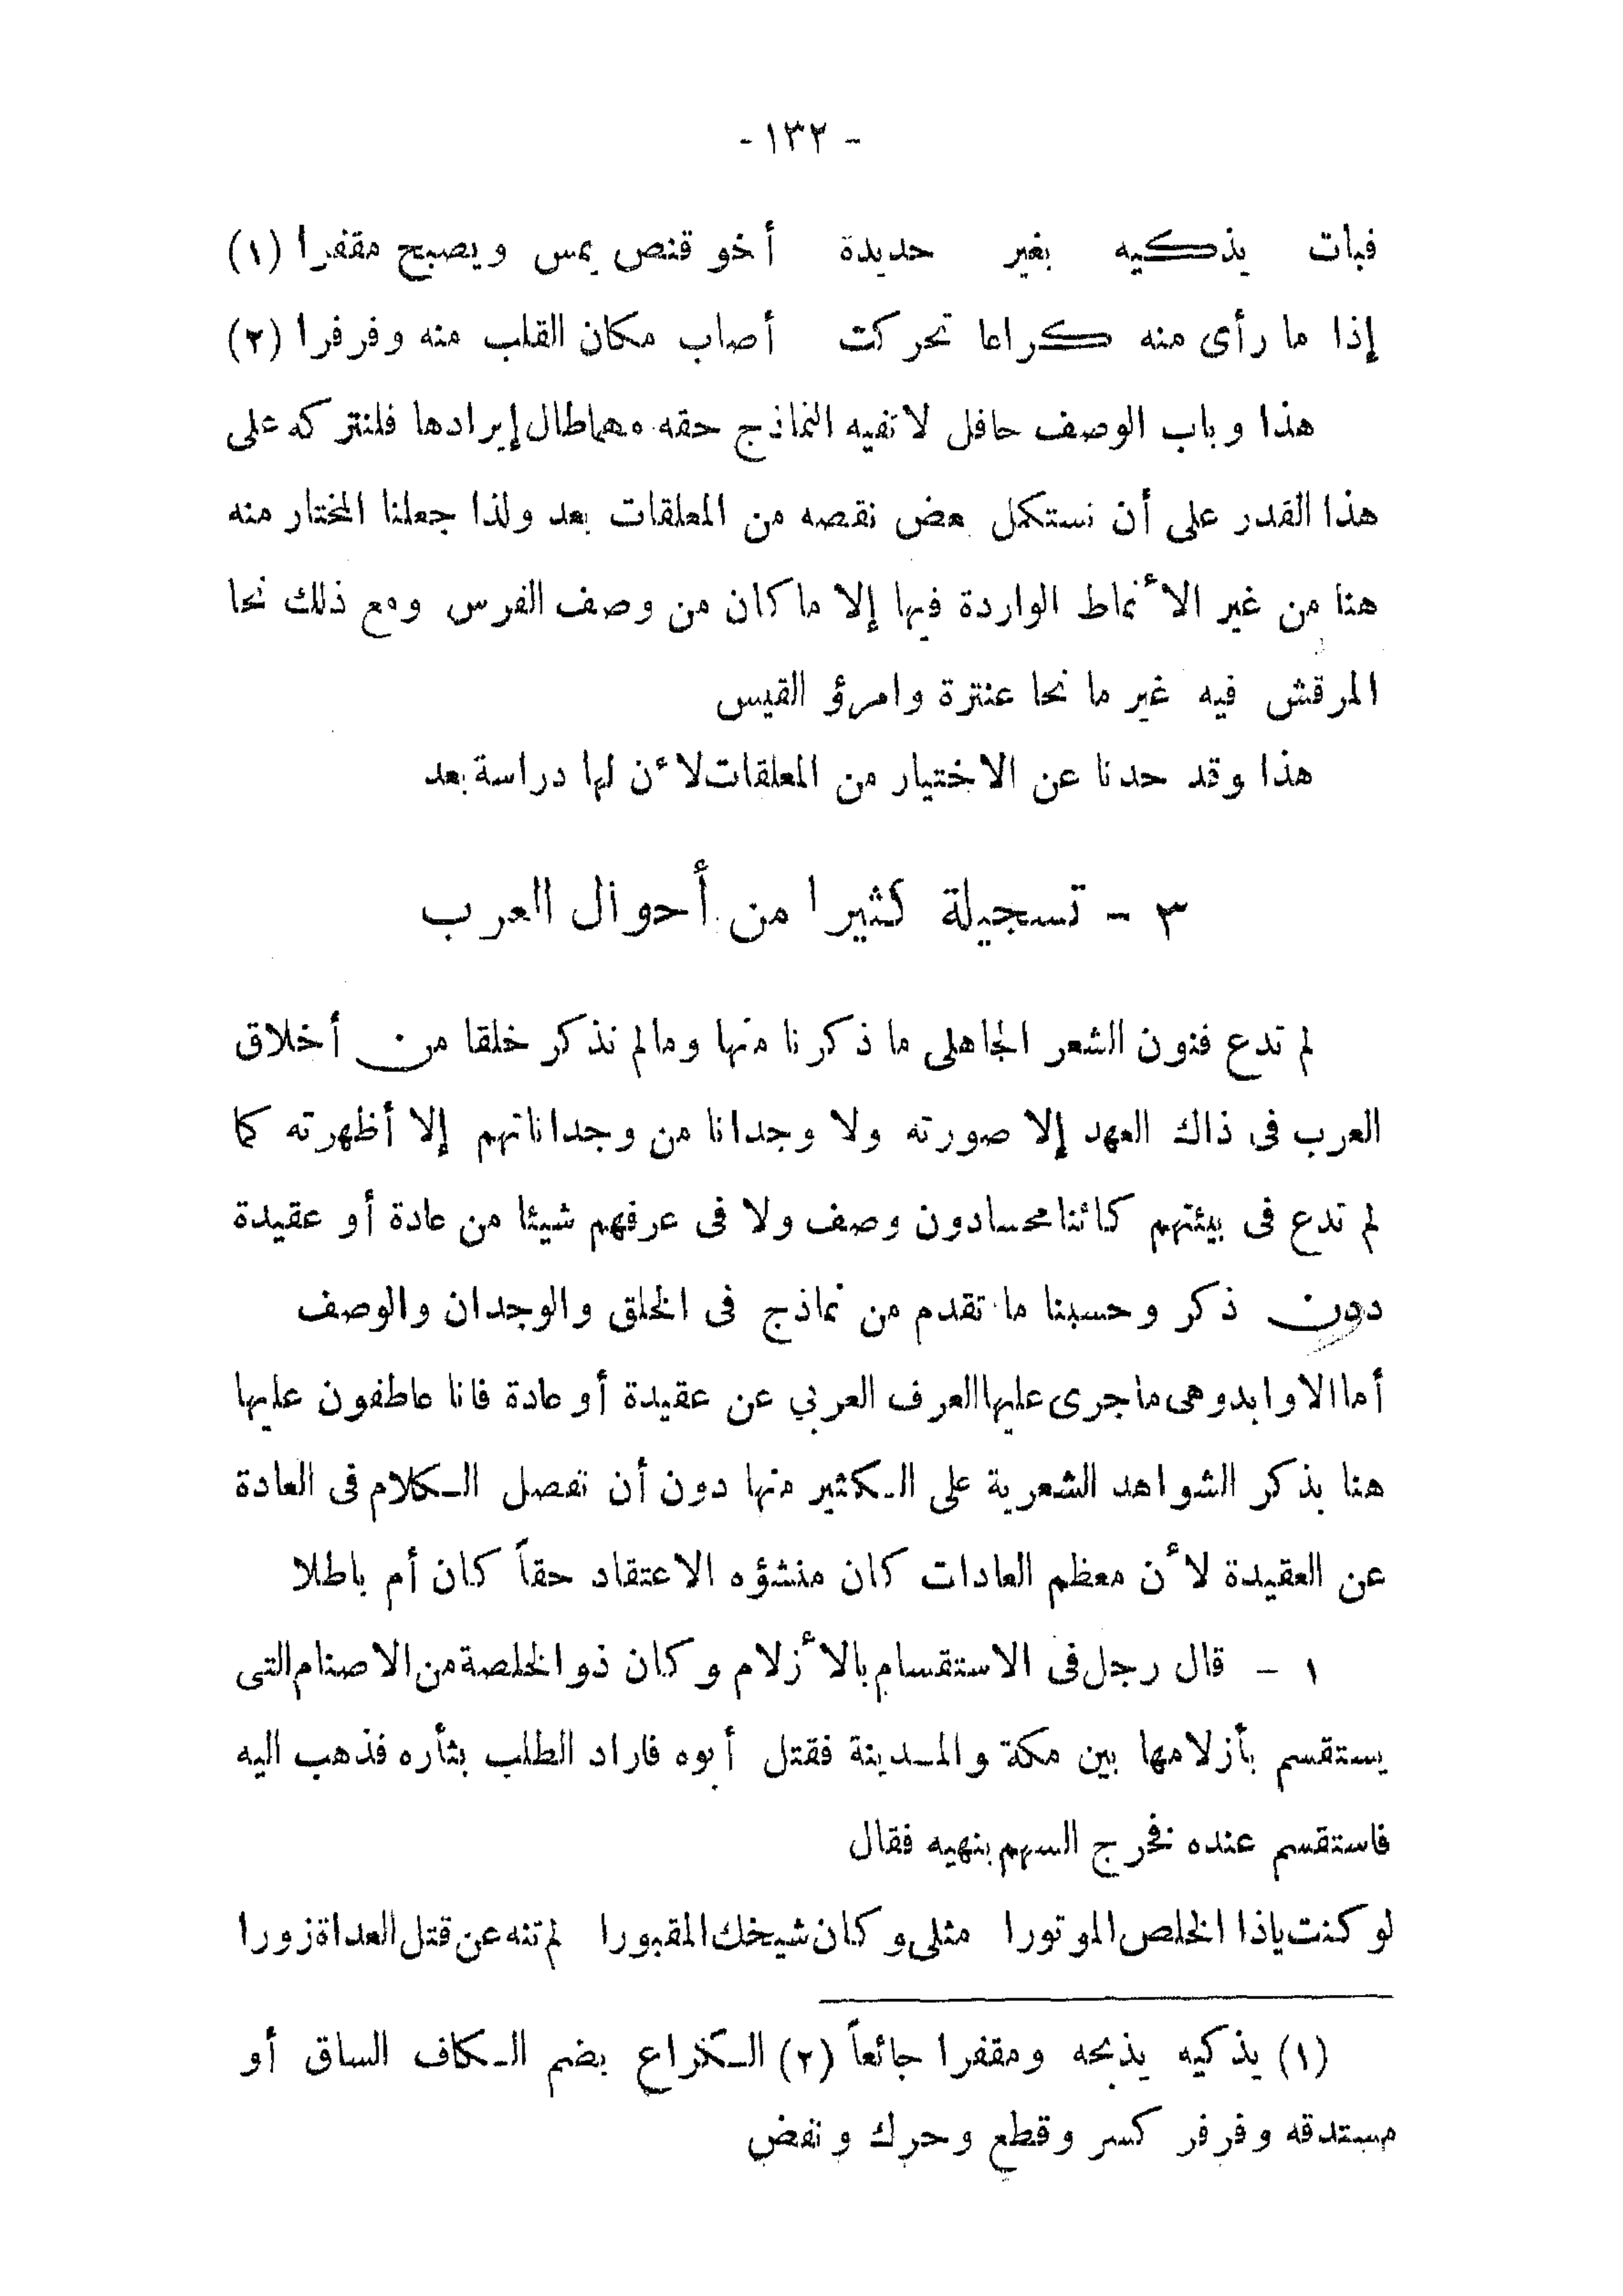 - ١٣٢ -
فبات يذكيه بغير حديدة أخو قنص يمس ويصبح مقفرا (١)
إذا ما رأى منه كراعا تحركت أصاب مكان القلب منه وفرفرا (٢)
هذا وباب الوصف حافل لا تفيه النماذج حقه مهما طال إيرادها فلنتركه على
هذا القدر على أن نستكمل بعض نقصه من المعلقات بعد ولذا جعلنا المختار منه
هنا من غير الأنماط الواردة فيها إلا ما كان من وصف الفرس ومع ذلك نحا
المرقش فيه غير ما نحا عنترة وامرؤ القيس
هذا وقد حدنا عن الاختيار من المعلقات لأن لها دراسة بعد
٣ - تسجيلة كثيرا من أحوال العرب
لم تدع فنون الشعر الجاهلى ما ذكرنا منها وما لم نذكر خلقا من أخلاق
العرب فى ذاك العهد إلا صورته ولا وجدانا من وجداناتهم إلا أظهرته كما
لم تدع فى بيئتهم كائنا محسا دون وصف ولا فى عرفهم شيئا من عادة أو عقيدة
دون ذكر وحسبنا ما تقدم من نماذج فى الخلق والوجدان والوصف
أما الاوابد وهى ما جرى عليها العرف العربي عن عقيدة أو عادة فانا عاطفون عليها
هنا بذكر الشواهد الشعرية على الكثير منها دون أن نفصل الكلام فى العادة
عن العقيدة لأن معظم العادات كان منشؤه الاعتقاد حقاً كان أم باطلا
١ - قال رجل فى الاستقسام بالأزلام وكان ذو الخلصة من الاصنام التى
يستقسم بأزلامها بين مكة والمدينة فقتل أبوه فاراد الطلب بثأره فذهب اليه
فاستقسم عنده فخرج السهم بنهيه فقال
لو كنت ياذا الخلص الموتورا مثلى وكان شيخك المقبورا لم تنه عن قتل العداة زورا
(١) يذكيه يذبحه ومقفرا جائعاً (٢) الكراع بضم الكاف الساق أو
مستدقه وفرفر كسر وقطع وحرك ونفض